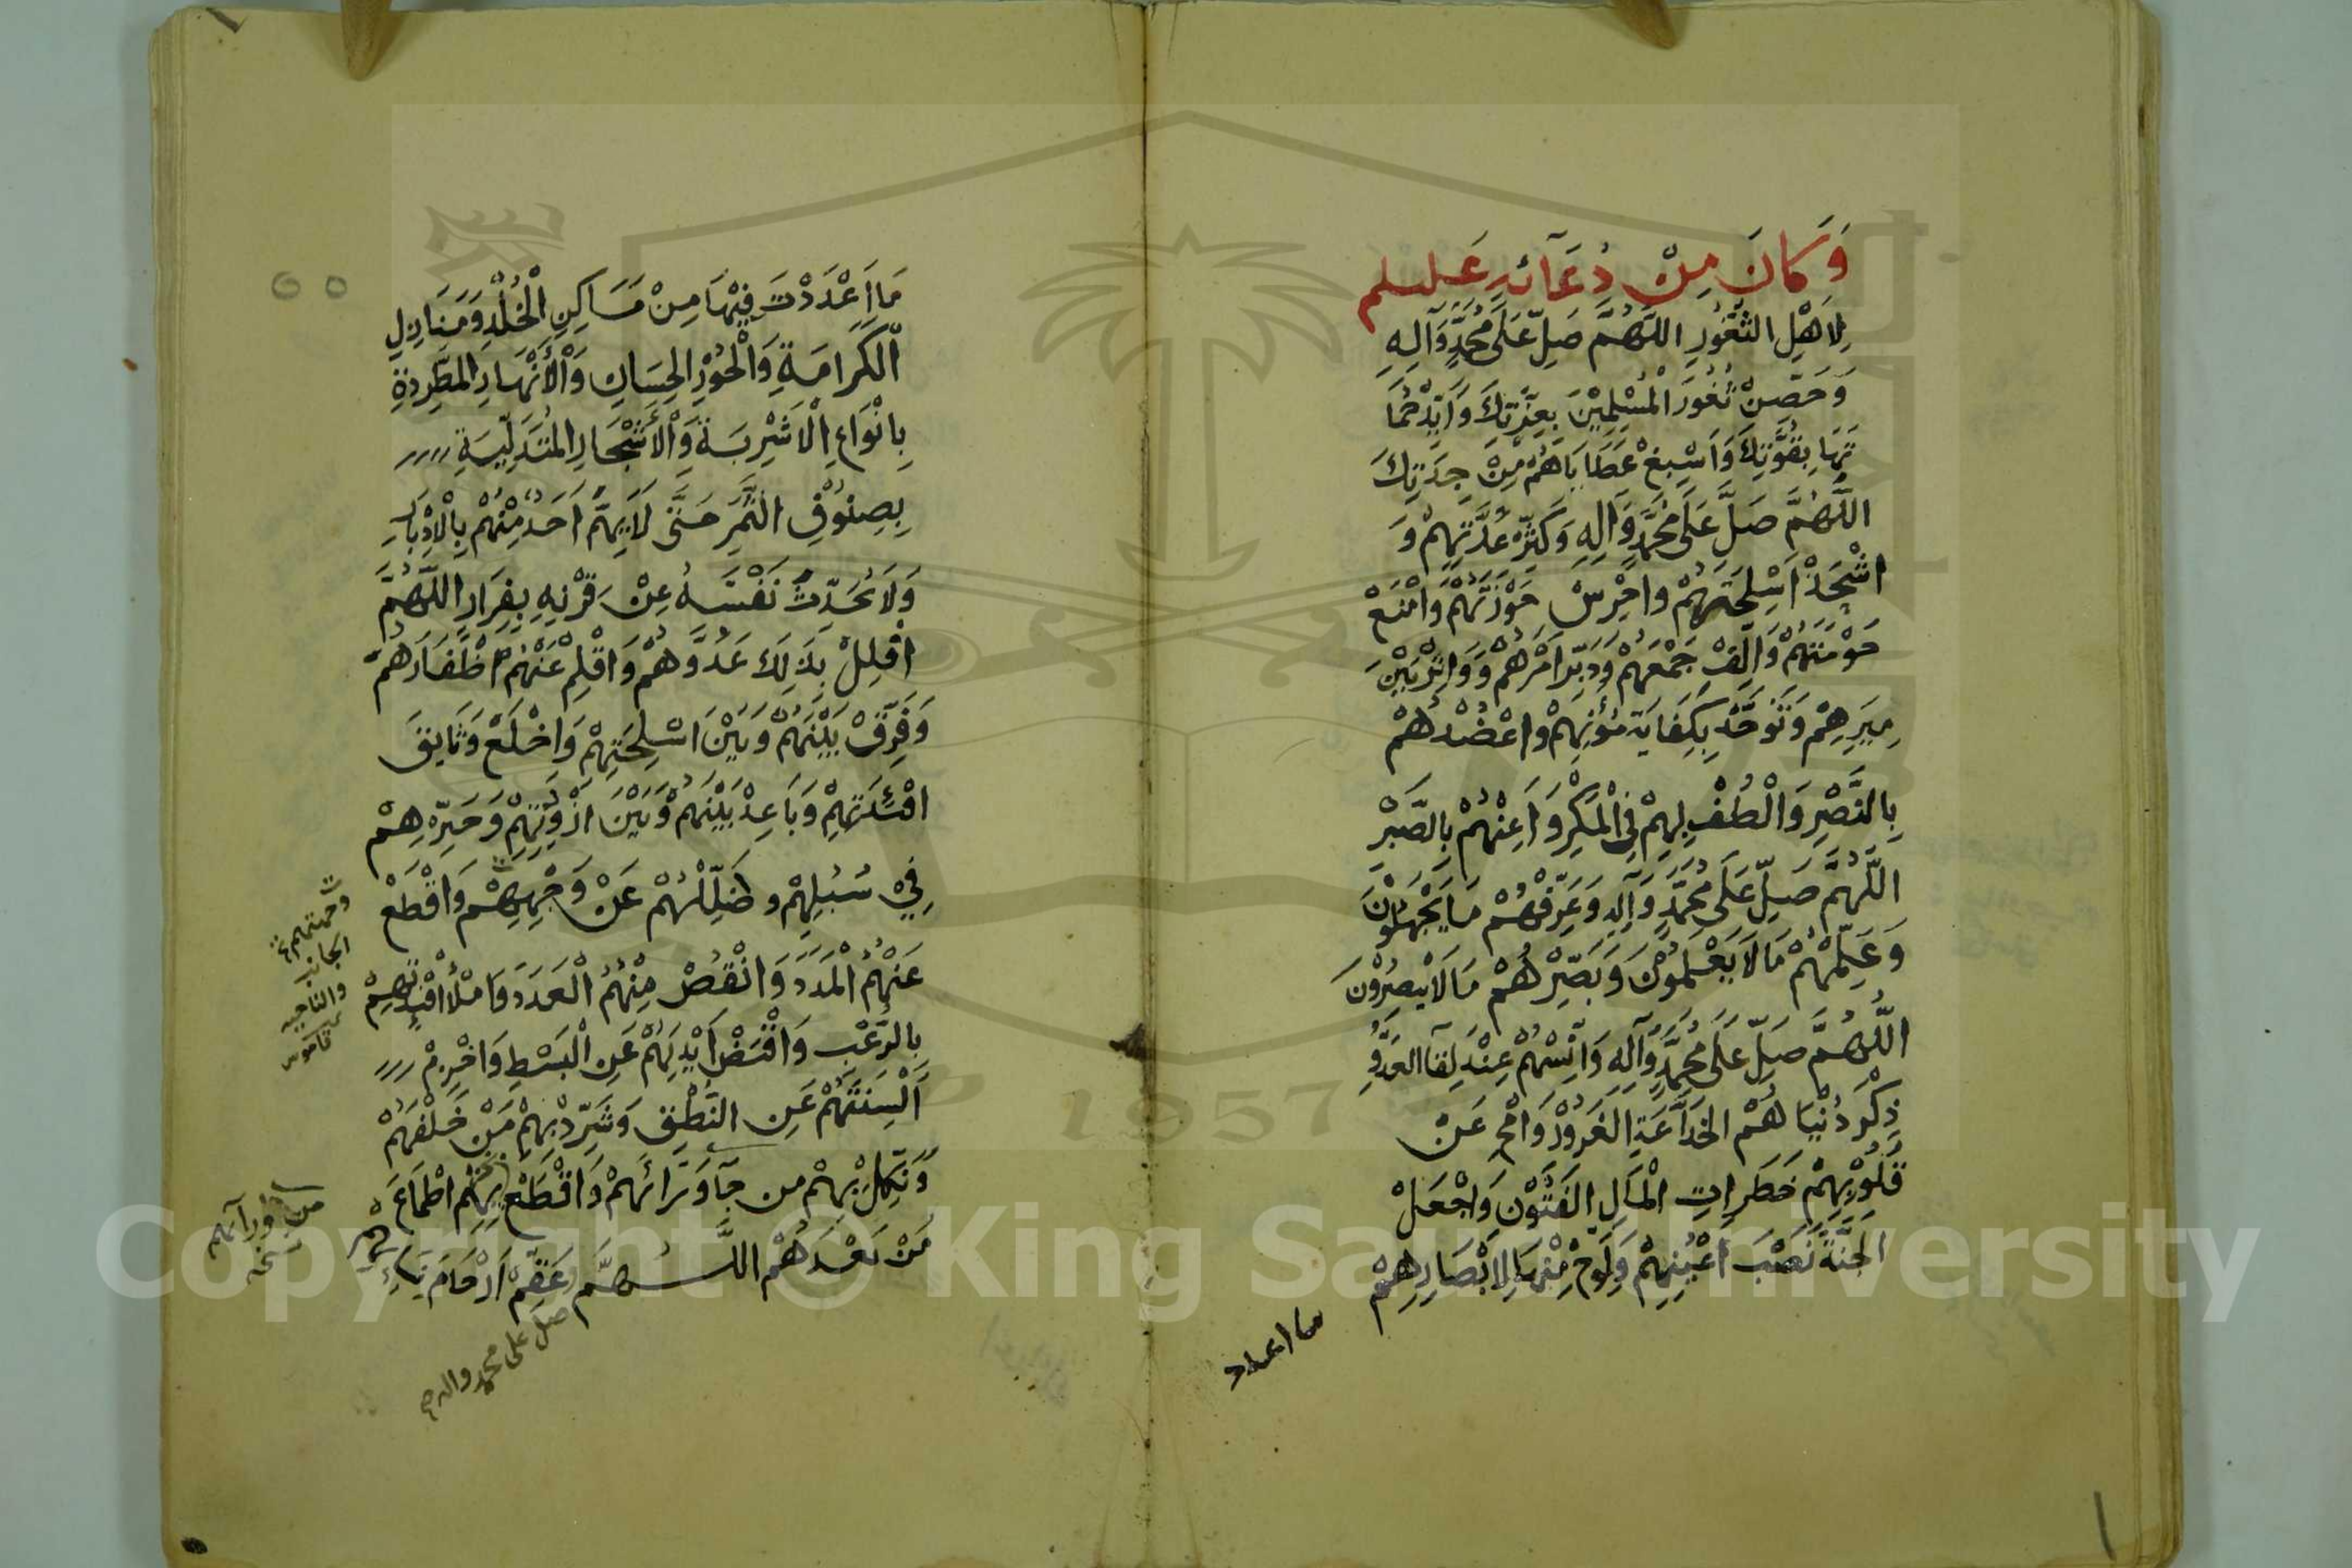 وَكَانَ مِنْ دُعَآئِهِ عَليسلم
لِاَهْلِ الثُّغُورِ اللَّهُمَّ صَلِّ عَلَى مُحَمَّدٍ وَآلِهِ
وَحَصِّنْ ثُغُورَ الْمُسْلِمِيْنَ بِعِزَّتِكَ وَاَيِّدْ حُمَا
تَهَا بِقُوَّتِكَ وَاَسْبِغْ عَطَايَاهُمْ مِنْ جِدَتِكَ
اللَّهُمَّ صَلِّ عَلَى مُحَمَّدٍ وَآلِهِ وَكَثِّرْ عُدَّتَهِمْ وَ
اشْحَذْ اَسْلِحَتَهُمْ وَاحْرِسْ حَوْزَتَهُمْ وَامْنَعْ
حَوْمَتَهُمْ وَاَلِّفْ جَمْعَهُمْ وَدَبِّرْ اَمْرَهُمْ وَوَاتِرْ بَيْنَ
مِيَرِهِمْ وَتَوَحَّدْ بِكِفَايَةِ مُؤَنِهِمْ وَاعْضُدْهُمْ
بِالنَّصْرِ وَالْطُفْ لِهِمْ فِي الْمَكْرِ وَاَعِنْهُمْ بِالصَّبْرِ
اللَّهُمَّ صَلِّ عَلَى مُحَمَّدٍ وَآلِهِ وَعَرِّفْهُمْ مَا يَجْهَلُوْنَ
وَعَلِّمْهُمْ مَا لَا يَعْلَمُوْنَ وَبَصِّرْهُمْ مَا لَا يُبْصِرُوْنَ
اللَّهُمَّ صَلِّ عَلَى مُحَمَّدٍ وَآلِهِ وَاَنْسِهُمْ عِنْدَ لِقَآ العَدُوِّ
ذِكْرَ دُنْيَا هُمْ الخَدَّاعَةِ الغَرُوْرِ وَامْحِ عَنْ
قُلُوْبِهِمْ خَطَرَاتِ الْمَالِ الفَتُوْنِ وَاجْعَلْ
الجَنَّةَ نُصْبَ اَعْيُنِهِمْ وَلَوِّحْ مِنْهَا لِاَبْصَارِهِمْ
ما اعدد
مَا اَعْدَدْتَ فِيْهَا مِنْ مَسَاكِنِ الْخُلْدِ وَمَنَازِلِ
الْكَرَامَةِ وَالْحُوْرِ الحِسَانِ وَالْأَنْهَارِ المُطَّرِدَةِ
بِاَنْوَاعِ الْاَشْرِبَةِ وَالْأَشْجَارِ المُتَدَلِّيَةِ
بِصِنُوْفِ الثَّمَرِ حَتَّى لَا يَهُمَّ اَحَدٌ مِنْهُمْ بِالْاِدْبَارِ
وَلَا يُحَدِّثَ نَفْسَهُ عَنْ قَرْنِهِ بِفِرَارٍ اللَّهُمَّ
افْلِلْ بِذَلِكَ عَدُوَّهُمْ وَاقْلِمْ عَنْهُمْ اَظْفَارَهُمْ
وَفَرِّقْ بَيْنَهُمْ وَبَيْنَ اَسْلِحَتِهِمْ وَاخْلَعْ وَثَائِقَ
افْئِدَتِهِمْ وَبَاعِدْ بَيْنَهُمْ وَبَيْنَ اَزْوِدَتِهِمْ وَحَيِّرْهُمْ
فِيْ سُبُلِهِمْ وضَلِّلْهُمْ عَنْ وَجْهِهِمْ وَاقْطَعْ
عَنْهُمُ الْمَدَدَ وَانْقُصْ مِنْهُمُ الْعَدَدَ وَامْلَأْ اَفْئِدَتَهِمْ
بِالرُّعْبِ وَاقْبَضْ اَيْدِيَهُمْ عَنِ الْبَسْطِ وَاخْزِمْ
اَلْسِنَتَهُمْ عَنِ النُّطْقِ وَشَرِّدْ بِهِمْ مَنْ خَلْفَهُمْ
وَنَكِّلْ بِهِمْ من مَآوَرَائَهُمْ وَاقْطَعْ بِهِمْ اطْمَاعَ
مَنْ بَعْدَهُمْ اللَّهُمَّ عَقِّمْ اَرْحَامَ نِسَائِهِمْ
صل على محمد واله صح
وجهتهم
الجانب
والناحيه
قاموس
من ورآءهم
نسخه